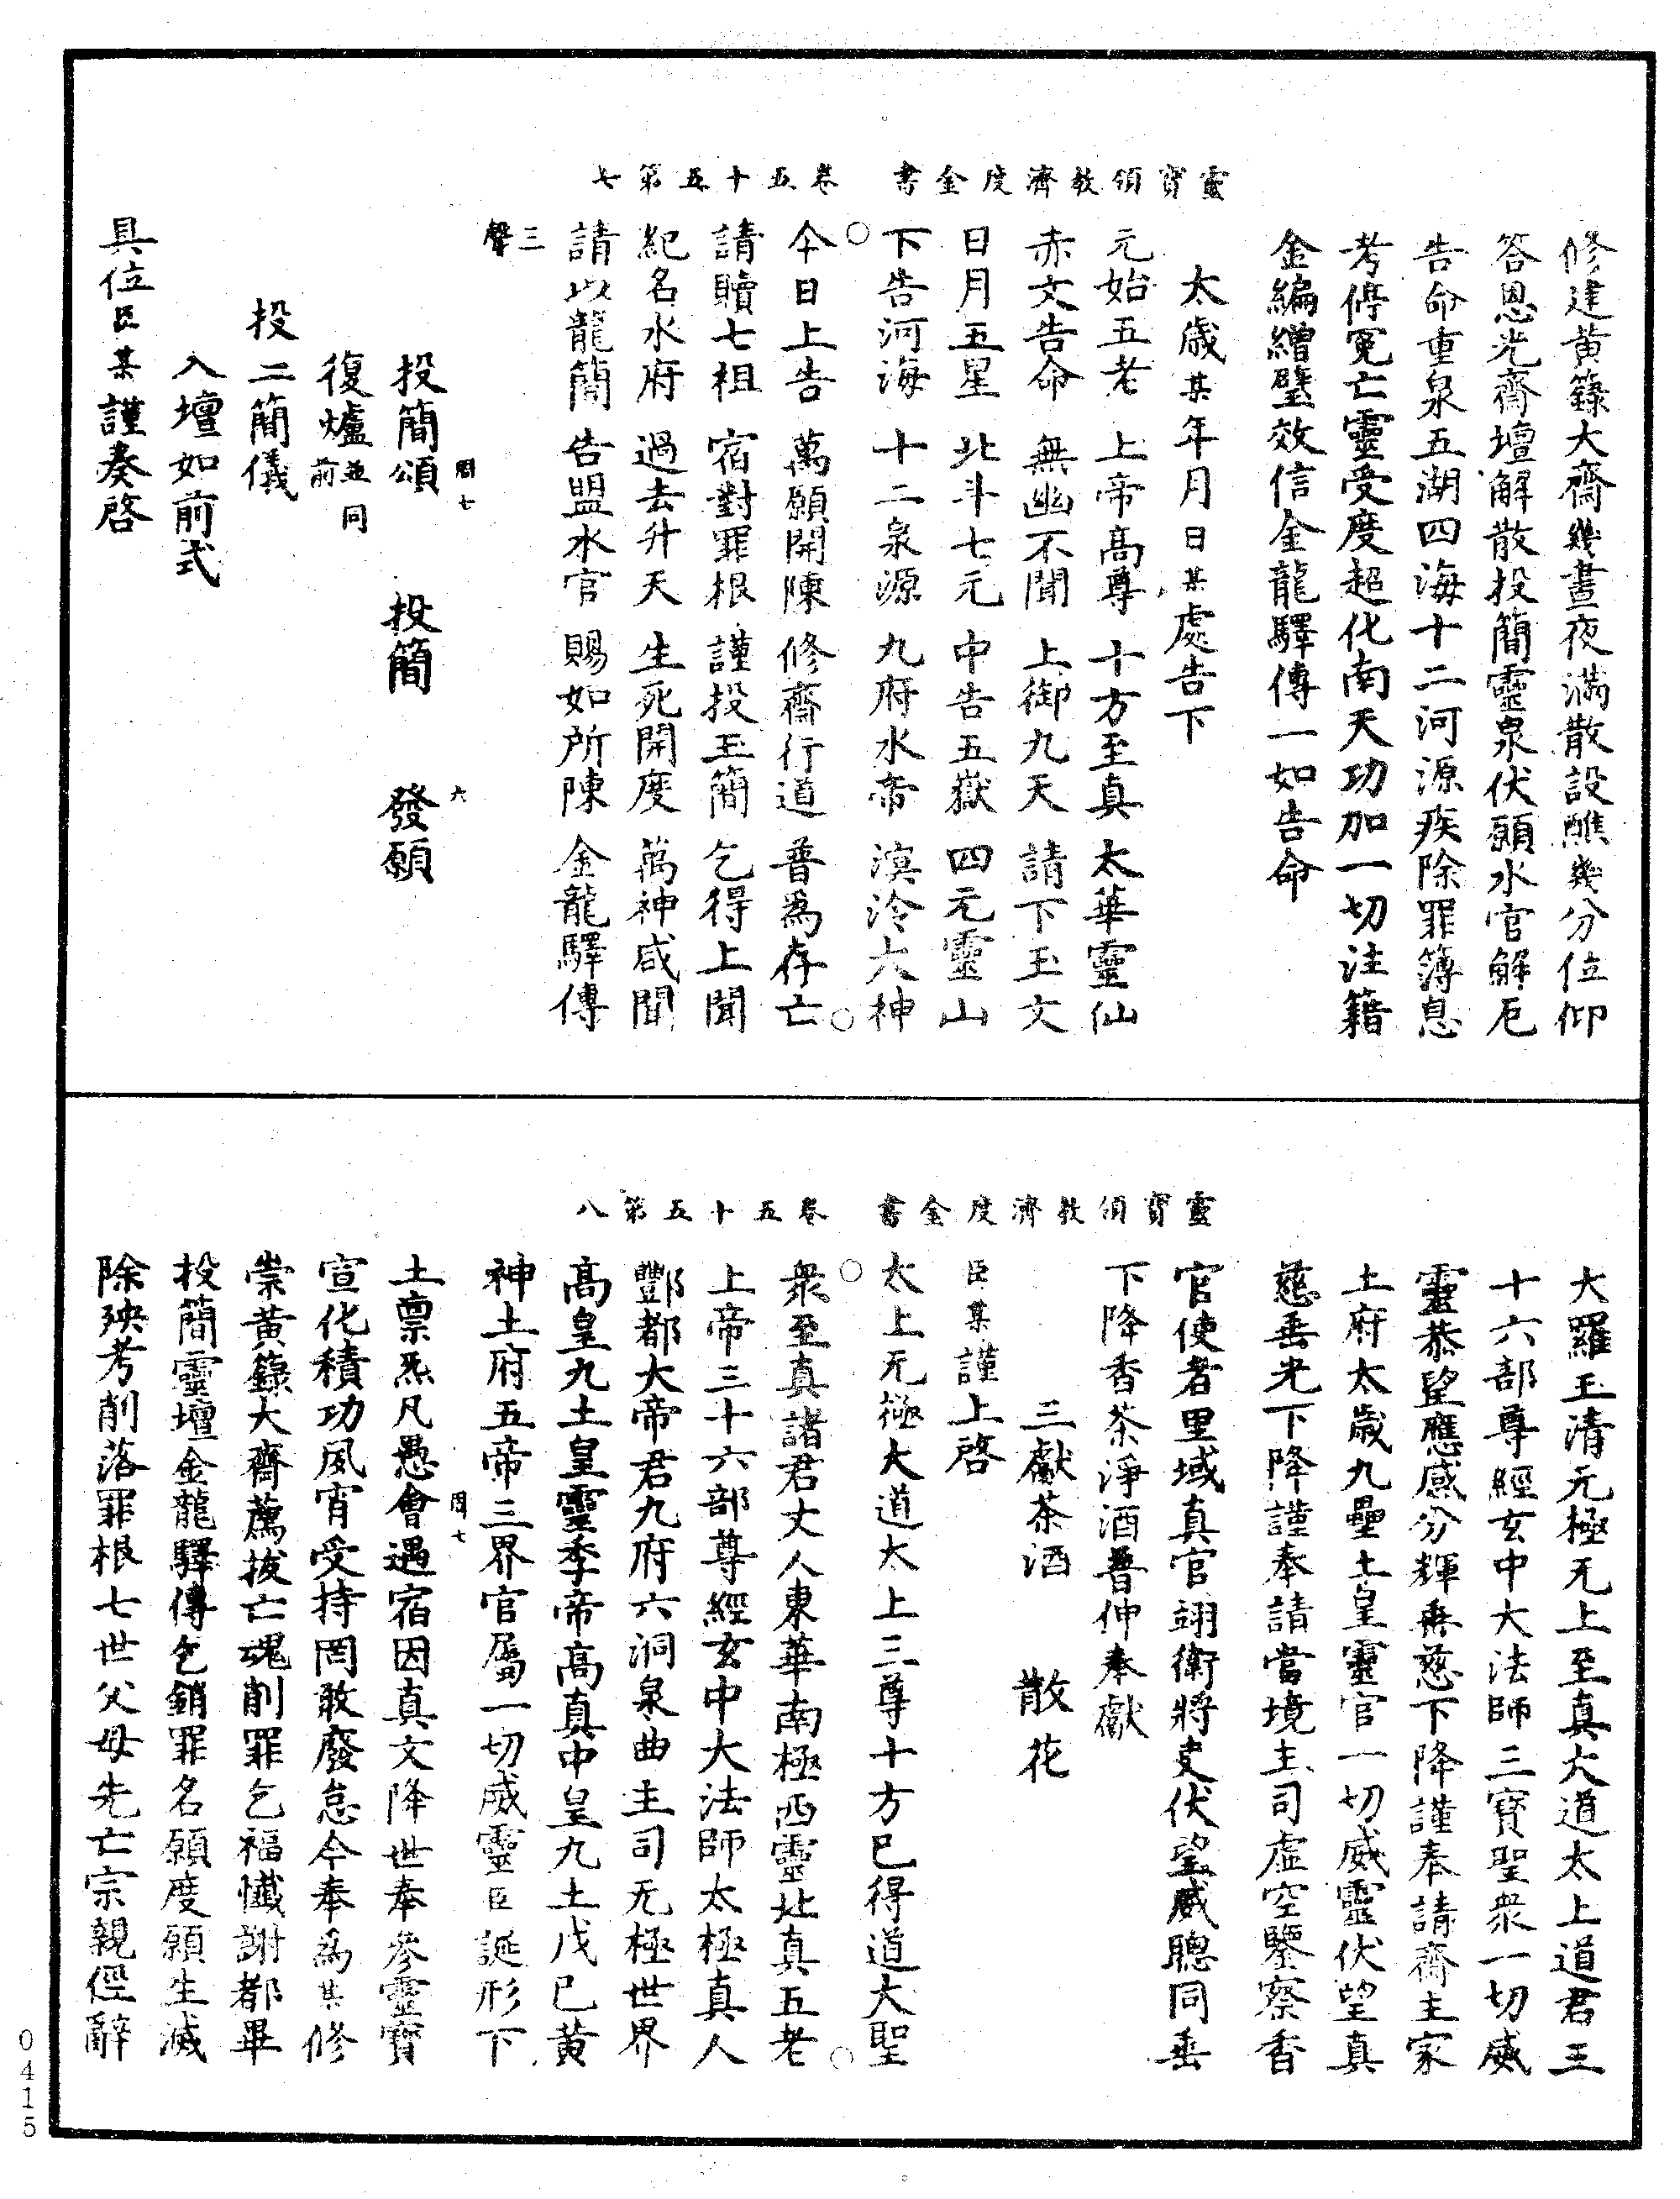 靈寶領教濟度金書　卷五十五第七
修建黃籙大齋幾晝夜滿散設醮幾分位仰
答恩光齋壇解散投簡靈泉伏願水官解厄
告命重泉五湖四海十二河源疾除罪簿息
考停冤亡靈受度超化南天功加一切注籍
金編繒璧效信金龍驛傳一如告命
太歲某年月日某處告下
元始五老　上帝高尊　十方至真　太華靈仙
赤文告命　無幽不聞　上御九天　請下玉文
日月五星　北斗七元　中告五嶽　四元靈山
下告河海　十二泉源　九府水帝　溟泠大神
今日上告　萬願開陳　修齋行道　普為存亡
請贖七祖　宿對罪根　謹投玉簡　乞得上聞
紀名水府　過去升天　生死開度　萬神咸聞
請以龍簡　告盟水官　賜如所陳　金龍驛傳
三聲
投簡頌　投簡　發願
周七　六
復爐並同前
投二簡儀
入壇如前式
具位臣某謹奏啓
靈寶領教濟度金書　卷五十五第八
大羅玉清元極无上至真大道太上道君三
十六部尊經玄中大法師三寶聖眾一切威
靈恭望應感分輝垂慈下降謹奉請齋主家
土府太歲九壘土皇靈官一切威靈伏望真
慈垂光下降謹奉請當境主司虛空鑒察香
官使者里域真官翊衛將吏伏望威聰同垂
下降香茶淨酒普伸奉獻
三獻茶酒　散花
臣某謹上啓
太上无極大道太上三尊十方已得道大聖
眾至真諸君丈人東華南極西靈北真五老
上帝三十六部尊經玄中大法師太極真人
酆都大帝君九府六洞泉曲主司无極世界
高皇九土皇靈季帝高真中皇九土戊己黃
神土府五帝三界官屬一切威靈臣誕形下
土禀炁凡愚會遇宿因真文降世奉參靈寶
周七
宣化積功夙宵受持罔敢廢怠今奉為某修
崇黃籙大齋薦拔亡魂削罪乞福懺謝都畢
投簡靈壇金龍驛傳乞銷罪名願度願生滅
除殃考削落罪根七世父母先亡宗親徑辭
0415